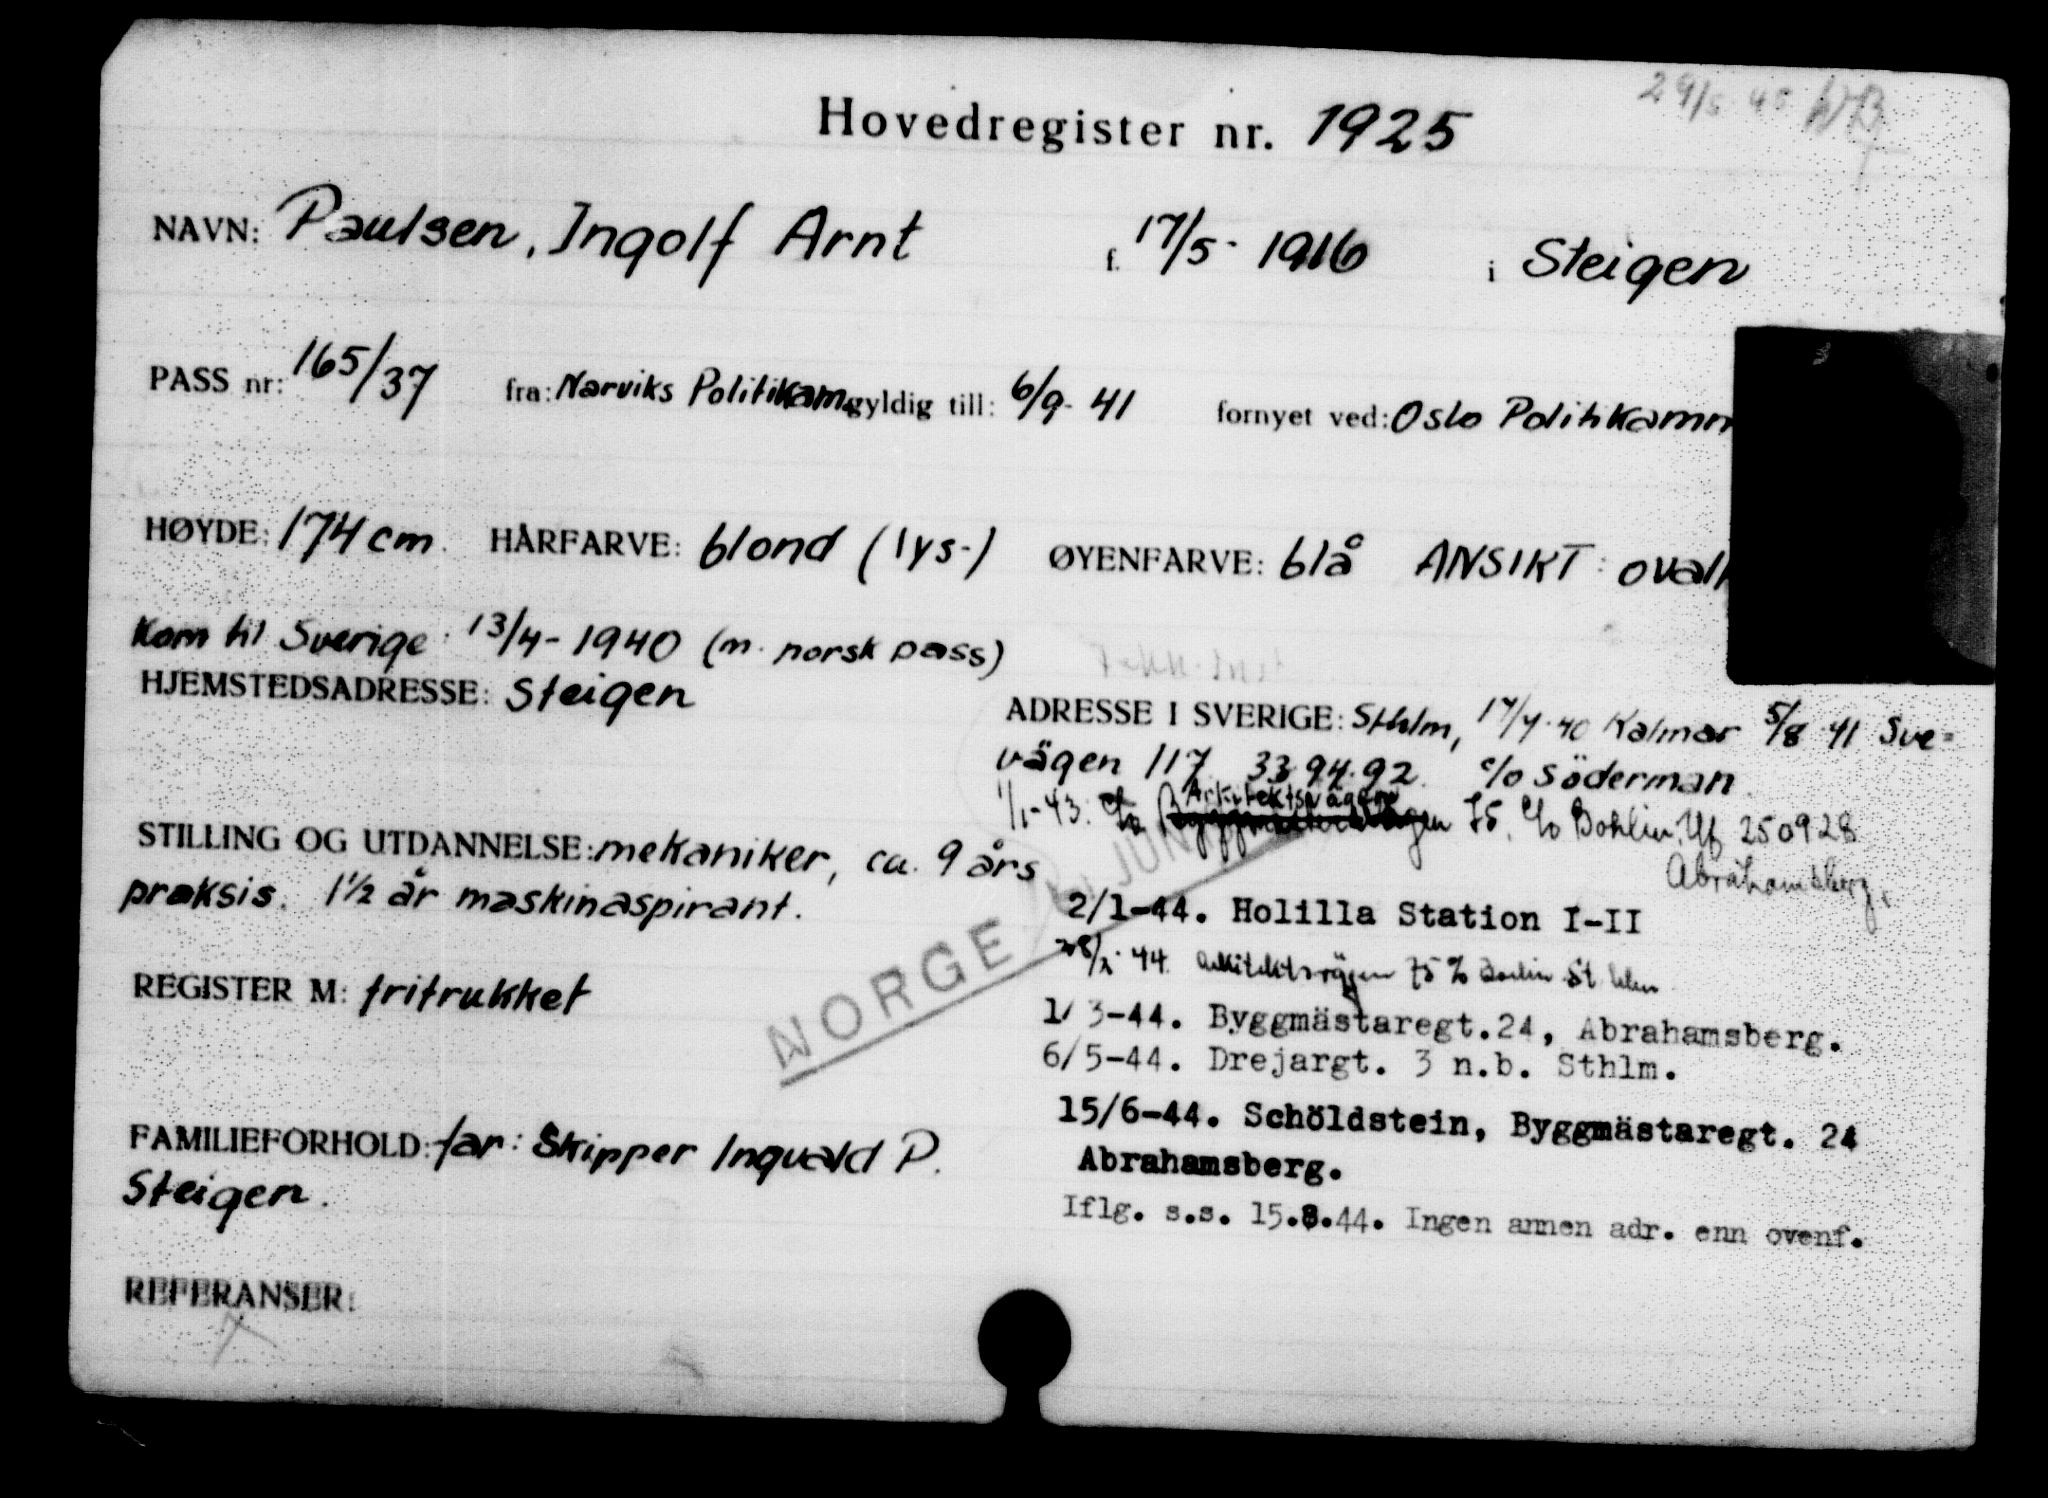 29/5 45
Hovedregister nr. 1925
NAVN: Paulsen, Ingolf Arnt f. 17/5 - 1916 i Steigen
PASS nr: 165/37 fra: Narviks Politikam. gyldig till: 6/9- 41 fornyet ved: Oslo Politikamm
HØYDE: 174 cm. HÅRFARVE: blond (lys-) ØYENFARVE: blå ANSIKT: ovalt
Kom til Sverige: 13/4- 1940 (m. norsk pass)
HJEMSTEDSADRESSE: Steigen
ADRESSE I SVERIGE: Sthlm, 17/4-40 Kalmar 5/8 41 Sve=
vägen 117 33 94 92. c/o Söderman.
1/1-43. Arkitektsvägen 75. c/o Bohlin. Tlf 250928
Abrahamsberg.
STILLING OG UTDANNELSE: mekaniker, ca. 9 års
praksis. 1½ år maskinaspirant.
2/1-44. Holilla Station I-II
28/2-44. Arkitektsvägen 75 c/o Bohlin Sthlm
REGISTER M: fritrukket
NORGE JUNI
1/3-44. Byggmästaregt.24, Abrahamsberg.
6/5-44. Drejargt. 3 n.b. Sthlm.
15/6-44. Schöldstein, Byggmästaregt. 24
Abrahamsberg.
FAMILIEFORHOLD: far: Skipper Ingvald P.
Steigen.
Iflg. s.s. 15.8.44. Ingen annen adr. enn ovenf.
REFERANSER: